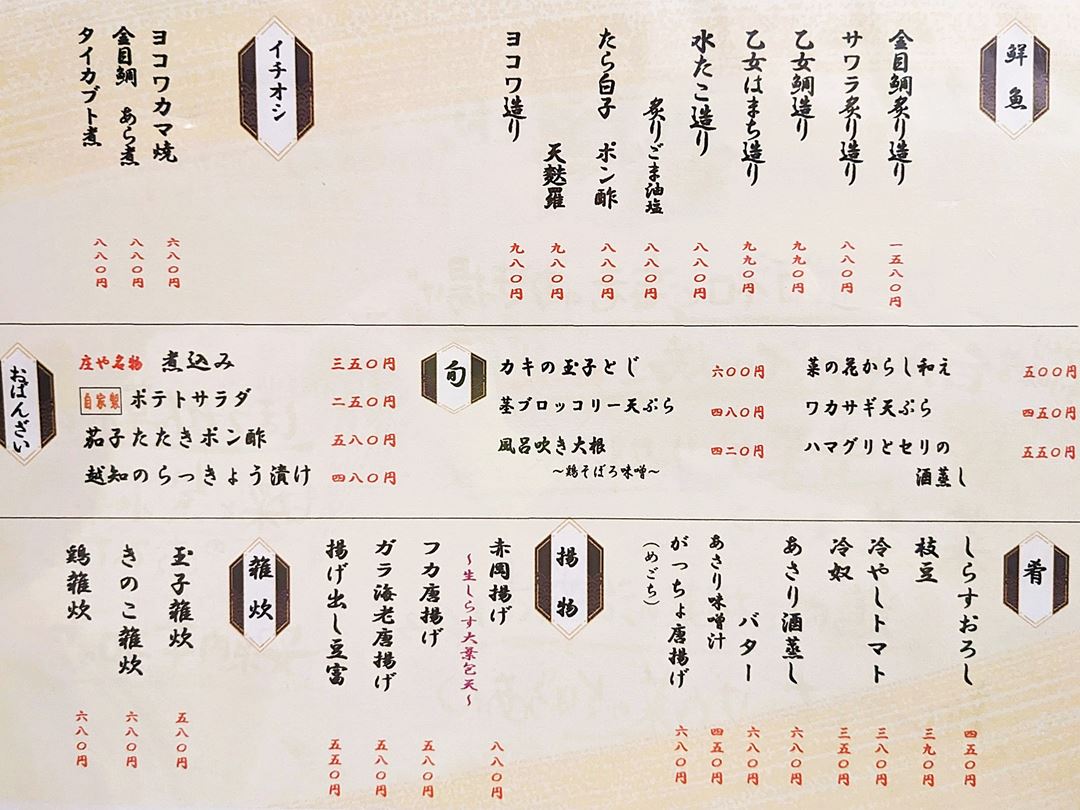 鮮魚
金目鯛炙り造り 一五八〇円
サワラ炙り造り 八八〇円
乙女鯛造り 九九〇円
乙女はまち造り 九九〇円
水たこ造り 八八〇円
炙りごま油塩 八八〇円
たら白子 ポン酢 八八〇円
天麩羅 九八〇円
ヨコワ造り 九八〇円
イチオシ
ヨコワカマ焼 六八〇円
金目鯛 あら煮 八八〇円
タイカブト煮 八八〇円
おばんざい
庄や名物 煮込み 三五〇円
自家製 ポテトサラダ 二五〇円
茄子たたきポン酢 五八〇円
越知のらっきょう漬け 四八〇円
旬
カキの玉子とじ 六〇〇円
茎ブロッコリー天ぷら 四八〇円
風呂吹き大根 四二〇円
～鶏そぼろ味噌～
菜の花からし和え 五〇〇円
ワカサギ天ぷら 四五〇円
ハマグリとセリの 五五〇円
酒蒸し
肴
しらすおろし 四五〇円
枝豆 三九〇円
冷やしトマト 三八〇円
冷奴 三五〇円
あさり酒蒸し 六八〇円
バター 六八〇円
あさり味噌汁 四五〇円
がっちょ唐揚げ 六八〇円
（めごち）
揚物
赤岡揚げ 八八〇円
～生しらす大葉包天～
フカ唐揚げ 五八〇円
ガラ海老唐揚げ 五八〇円
揚げ出し豆富 五五〇円
雑炊
玉子雑炊 五八〇円
きのこ雑炊 六八〇円
鶏雑炊 六八〇円